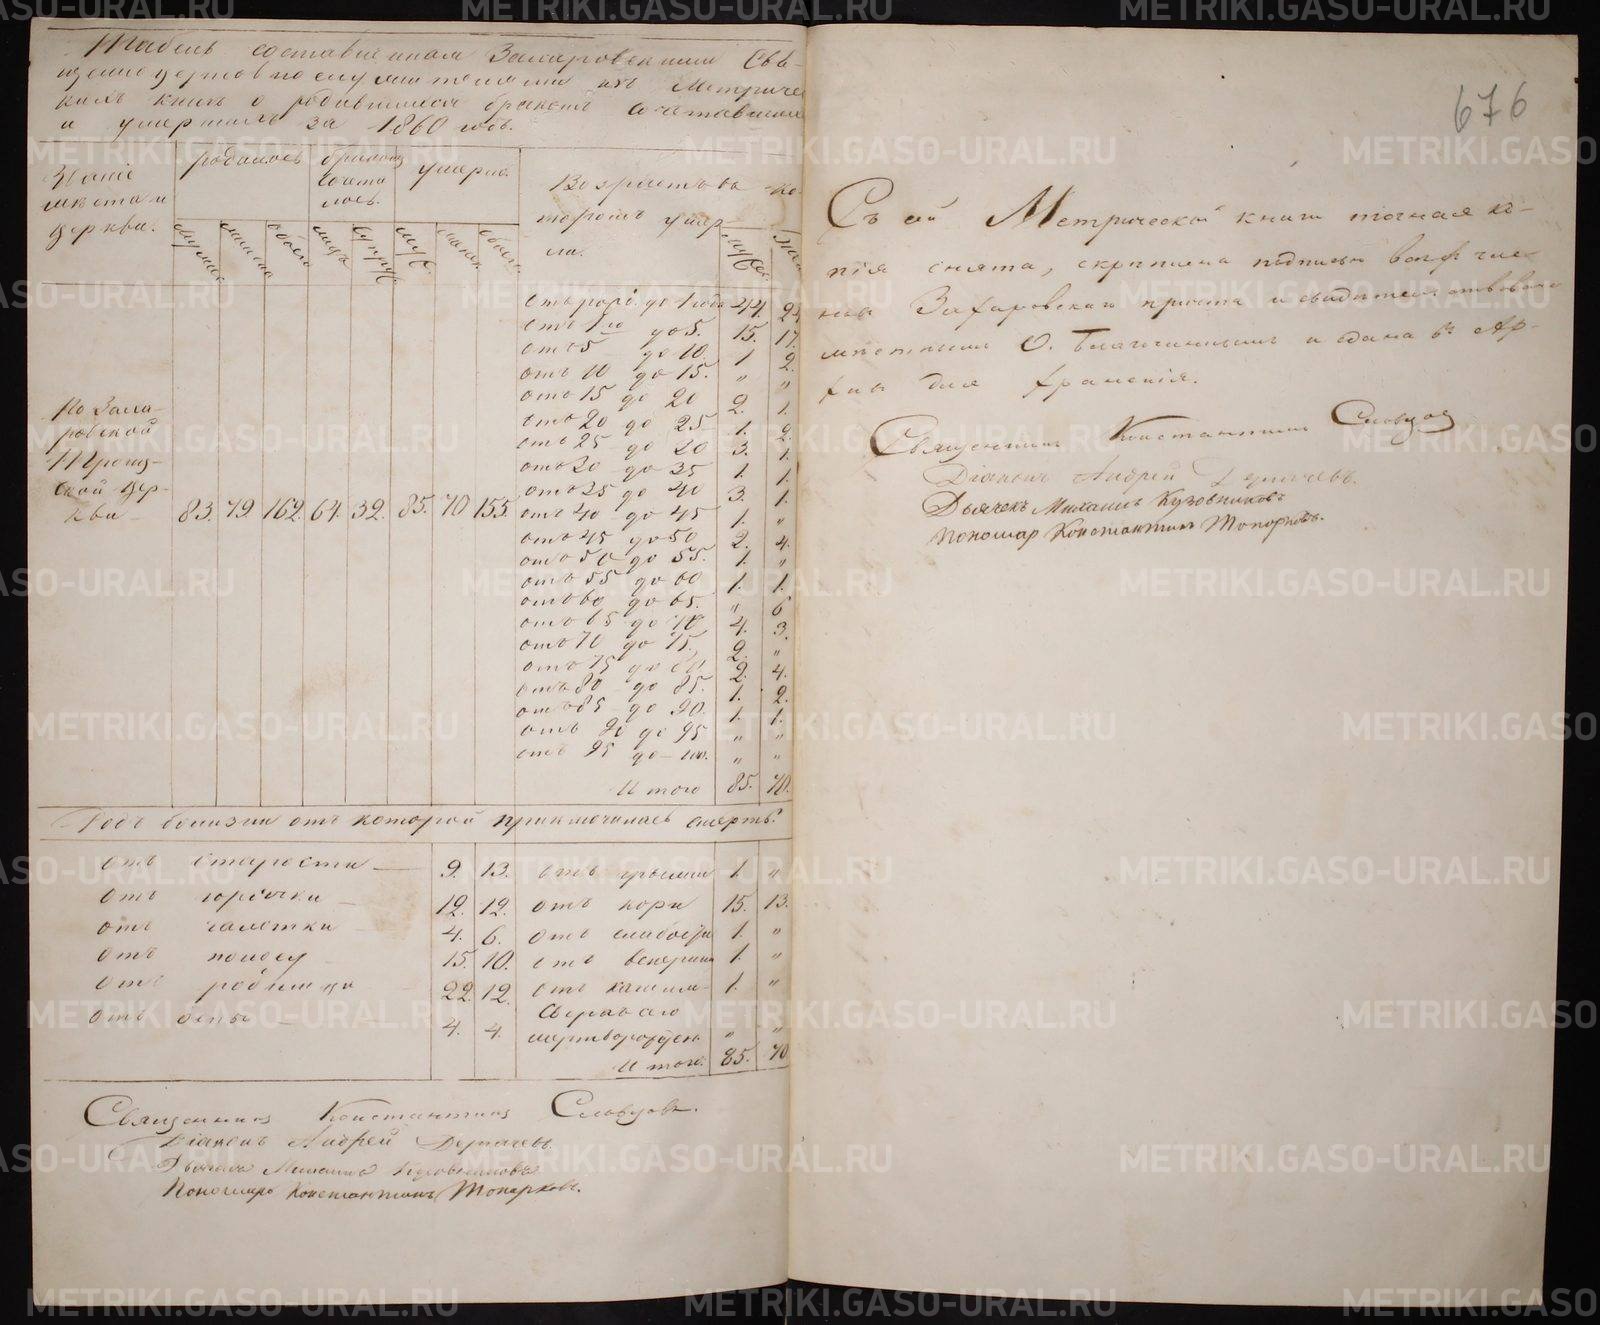 Табель составленная Захаровскими Свя-
щенноцерковнослужителями изъ Метриче
кихъ книгъ о родившихся бракомъ сочетавшихся
и умершихъ за 1860 годъ.
Званіе
мѣста и
церкви.
родилось
браковъ
сочета
лось.
умерло.
Возрастъ въ ко-
торомъ умер-
ли.
обоего
лицъ
супруг.
муж.
обоего.
По Заха-
ровской
Троиц-
кой цер-
кви
83. 79. 162. 64. 32. 85. 70 155.
отъ рожд. до 1 года 44. 24
отъ 1 го до 5. 15. 17.
отъ 5 до 10. 1 2.
отъ 10 до 15. " "
отъ 15 до 20 2. 1.
отъ 20 до 25 1. 2.
отъ 25 до 30 3. 1.
отъ 30 до 35 1. 1.
отъ 35 до 40 3. 1.
отъ 40 до 45 1. "
отъ 45 до 50 2. 4.
отъ 50 до 55. 1. "
отъ 55 до 60 1. 1.
отъ 60 до 65. " 6
отъ 65 до 70 4. 3.
отъ 70 до 75. 2. "
отъ 75 до 80. 2. 4.
отъ 80 до 85. 1. 2.
отъ 85 до 90. 1. 1.
отъ 90 до 95 " "
отъ 95 до 100. " "
Итого 85. 70.
Родъ болѣзни отъ которой приключилась смерть.
отъ старости 9. 13. отъ грыжи 1. "
отъ горячки 12. 12. отъ кори 15. 13.
отъ чахотки 4. 6. отъ слабости 1. "
отъ поносу 15. 10. отъ 1. "
отъ родимца 22. 12. отъ кашля 1. "
отъ оспы 4. 4.
Сверхъ сего
мертворожден. " "
Итого. 85. 70
Священникъ Константинъ Словцовъ.
Діаконъ Андрей Дерпачевъ.
Дьячекъ Михаилъ Кузовниковъ
Пономарь Константинъ Топорковъ.
676
Съ сей Метрической книги точная ко-
пія снята, скрѣплена подписью
Захаровскаго причта и свидѣтельствована
мѣстнымъ О. Благочиннымъ и сдана въ Ар-
хивъ для храненія.
Священникъ Константинъ Словцов
Діаконъ Андрей Дерпачевъ.
Дьячекъ Михаилъ Кузовниковъ
Пономар Константинъ Топорковъ.
METRIKI.GASO-URAL.RU